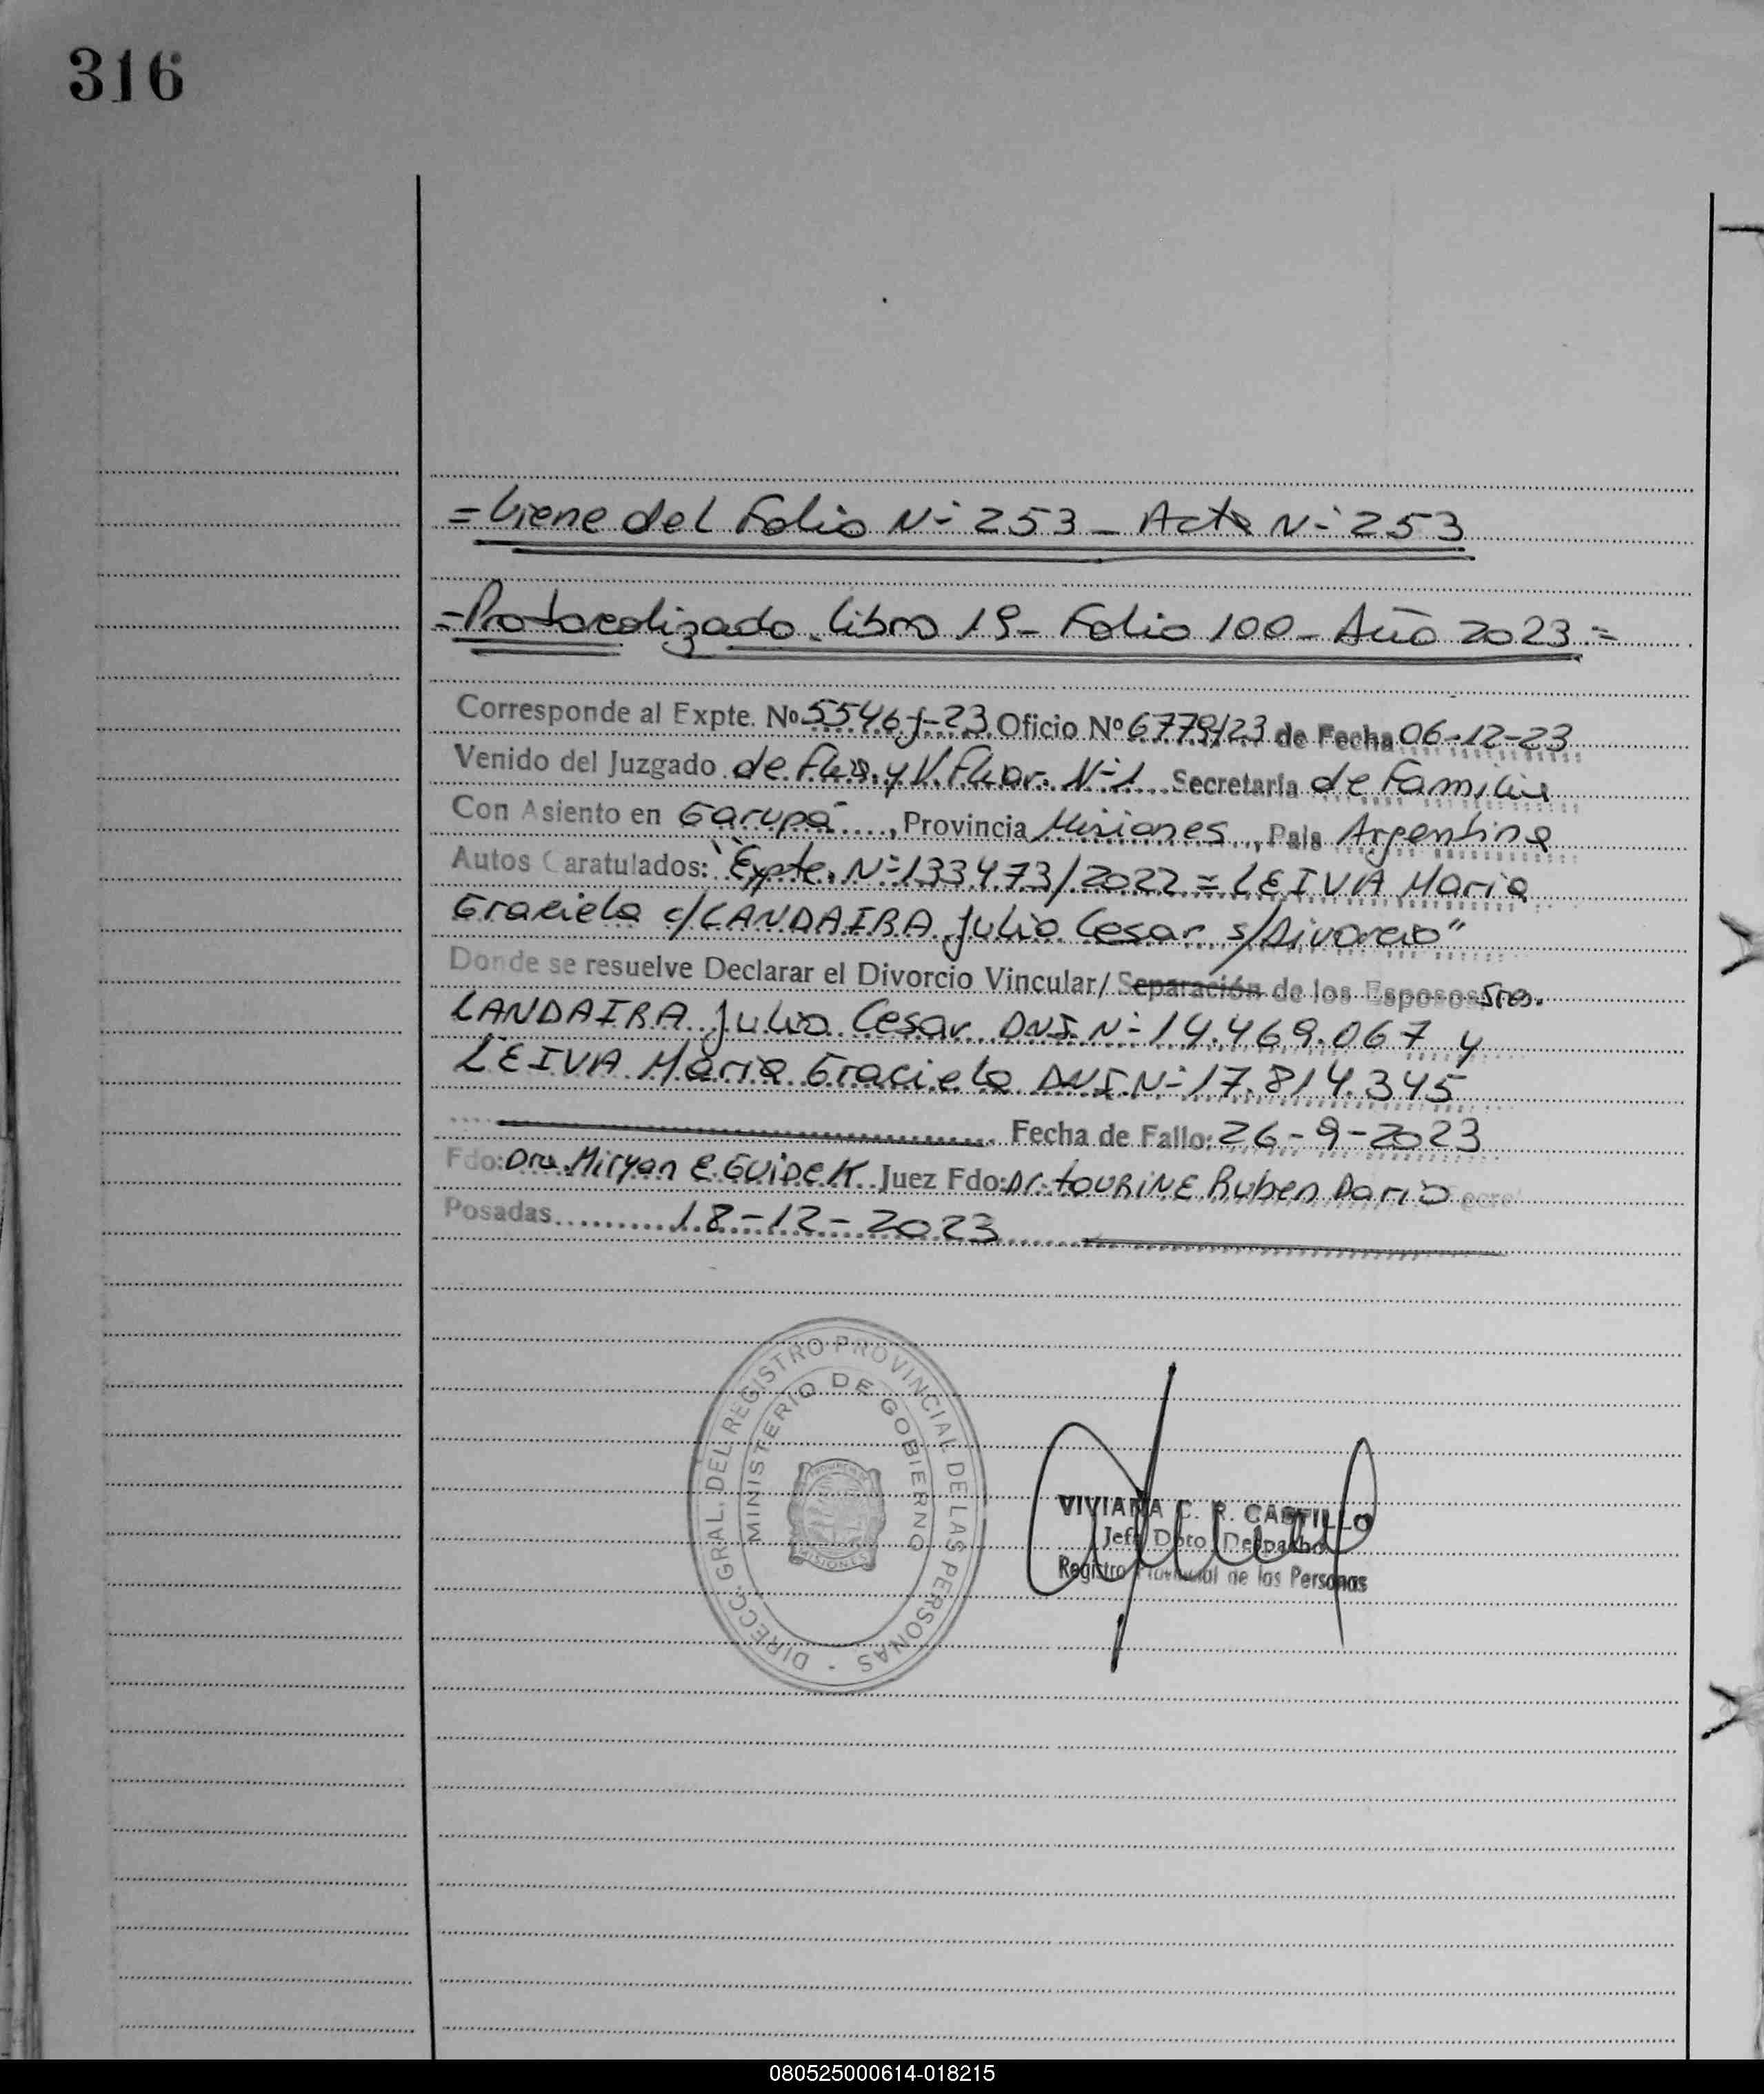 316
= Viene del Folio Nº 253 - Acta Nº 253
= Protocolizado. Libro 19 - Folio 100 - Año 2023 =
Corresponde al Expte. Nº 5546-J-23 Oficio Nº 6779/23 de Fecha 06-12-23
Venido del Juzgado de Flia. y V. Fliar. Nº 1 Secretaría de Familia
Con Asiento en Garupá, Provincia Misiones, País Argentina
Autos Caratulados: "Expte. Nº 133473/2022 = LEIVA Maria
Graciela c/ LANDAIRA Julio Cesar s/ Divorcio"
Donde se resuelve Declarar el Divorcio Vincular/ Separación de los Esposos Sres.
LANDAIRA Julio Cesar DNI Nº 14.469.067 y
LEIVA Maria Graciela DNI Nº 17.814.345
Fecha de Fallo: 26-9-2023
Fdo: Dra. Miryan E. GUIDEK Juez Fdo: Dr. TOURINE Ruben Dario Secret
Posadas 18-12-2023
DIRECC. GRAL. DEL REGISTRO PROVINCIAL DE LAS PERSONAS
MINISTERIO DE GOBIERNO
PROVINCIA DE
MISIONES
VIVIANA C. R. CASTILLO
Jefe Dpto Despacho
Registro Provincial de las Personas
080525000614-018215